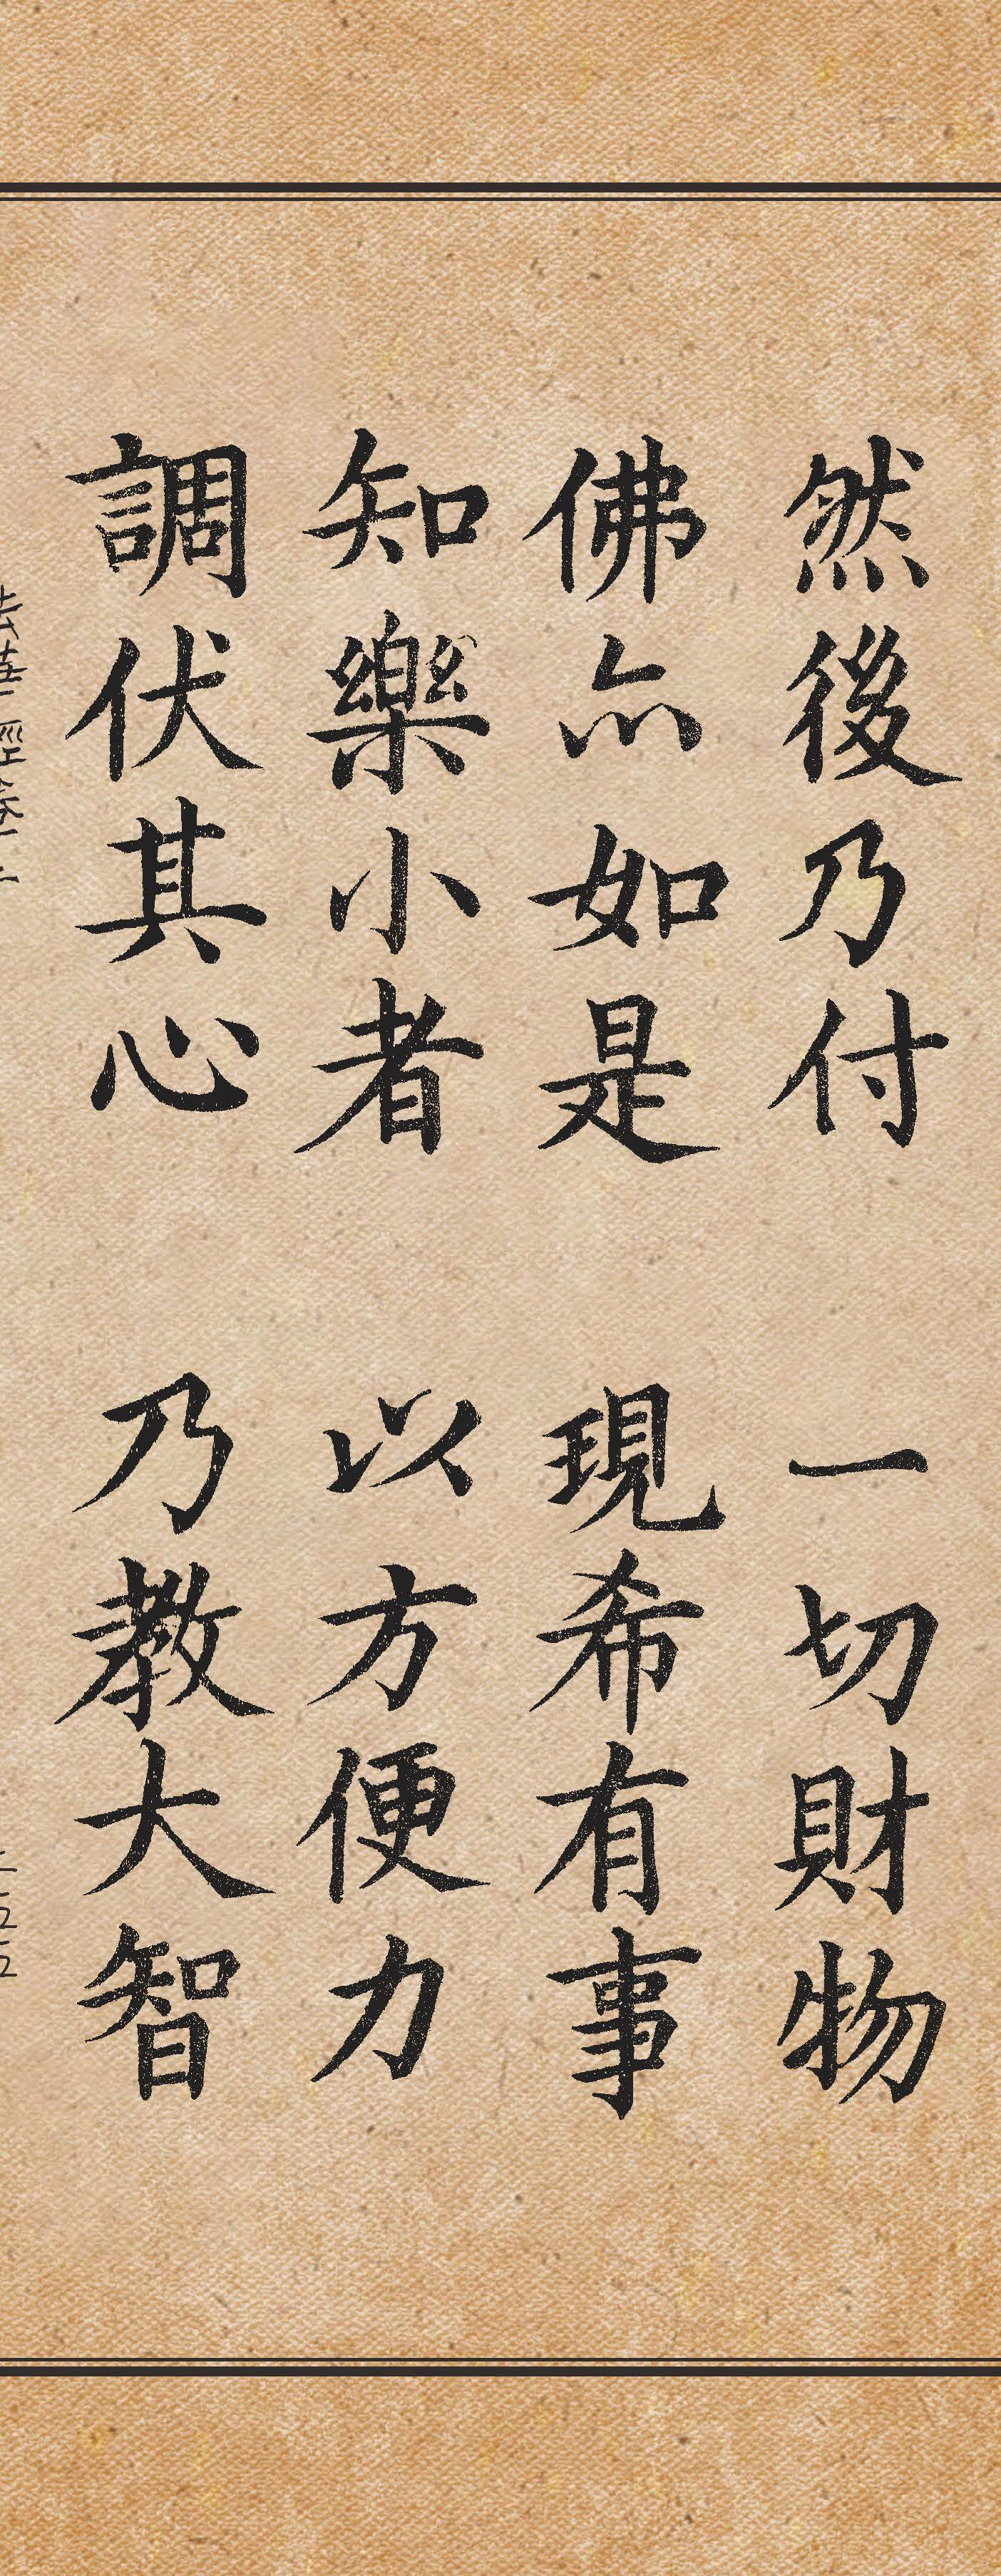 然後乃付　一切財物
佛亦如是　現希有事
知樂小者　以方便力
調伏其心　乃教大智